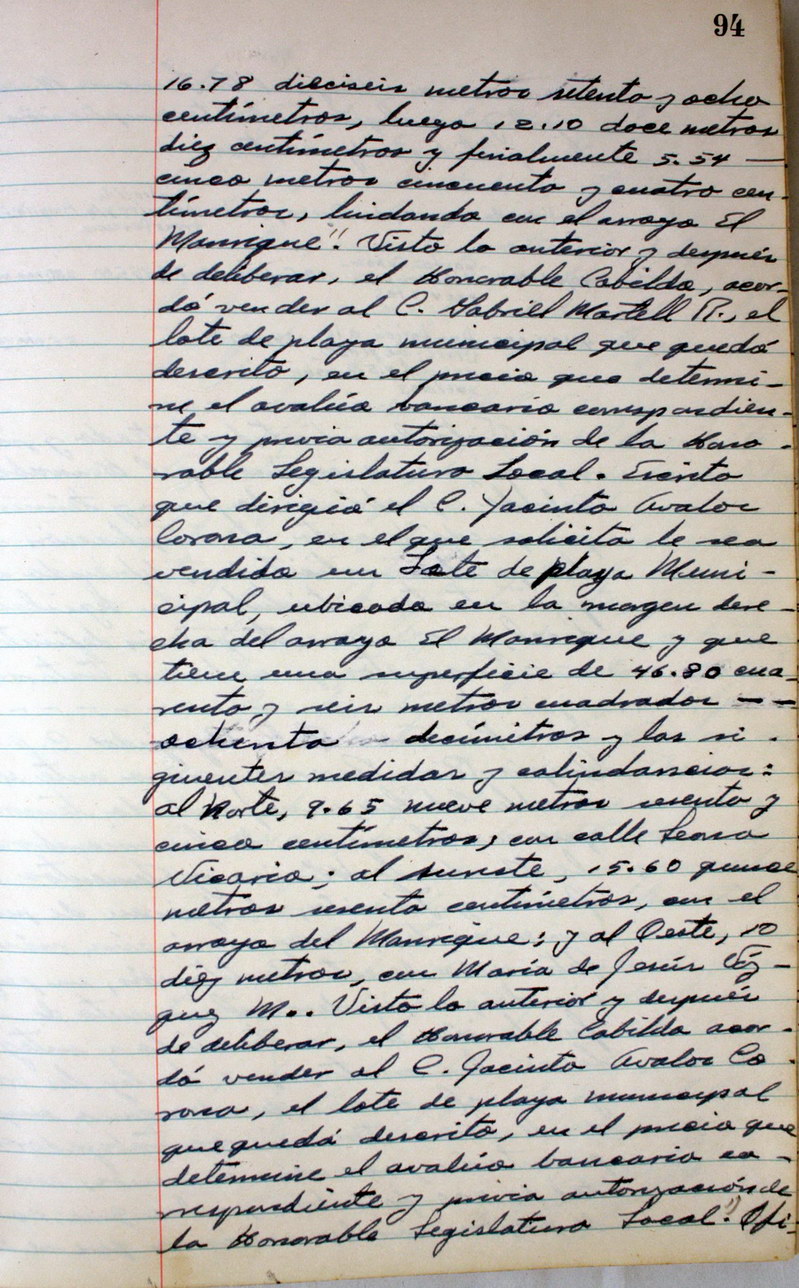 94
16.78 dieciseis metros setenta y ocho
centímetros, luego 12.10 doce metros
diez centímetros y finalmente 5.54 —
cinco metros cincuenta y cuatro cen-
tímetros, lindando con el arroyo El
Manrique". Visto lo anterior y después
de deliberar, el Honorable Cabildo, acor-
dó vender al C. Gabriel Martell R., el
lote de playa municipal que quedó
descrito, en el precio que determi-
ne el avalúo bancario correspondien-
te y previa autorización de la Hono-
rable Legislatura Local. Escrito
que dirigió el C. Jacinto Avalos
Corona, en el que solicita le sea
vendido un Lote de playa Muni-
cipal, ubicado en la margen dere-
cha del arroyo El Manrique y que
tiene una superficie de 46.80 cua-
renta y seis metros cuadrados — —
ochenta — decímetros y las si-
guientes medidas y colindancias:
al Norte, 9.65 nueve metros sesenta y
cinco centímetros, con calle Leona
Vicario; al sureste, 15.60 quince
metros sesenta centímetros, con el
arroyo del Manrique; y al Oeste, 10
diez metros, con María de Jesús Váz-
quez M.. Visto lo anterior y después
de deliberar, el Honorable Cabildo acor-
dó vender al C. Jacinto Avalos Co-
rona, el lote de playa municipal
que quedó descrito, en el precio que
determine el avalúo bancario co-
rrespondiente y previa autorización de
la Honorable Legislatura Local." Ofi-